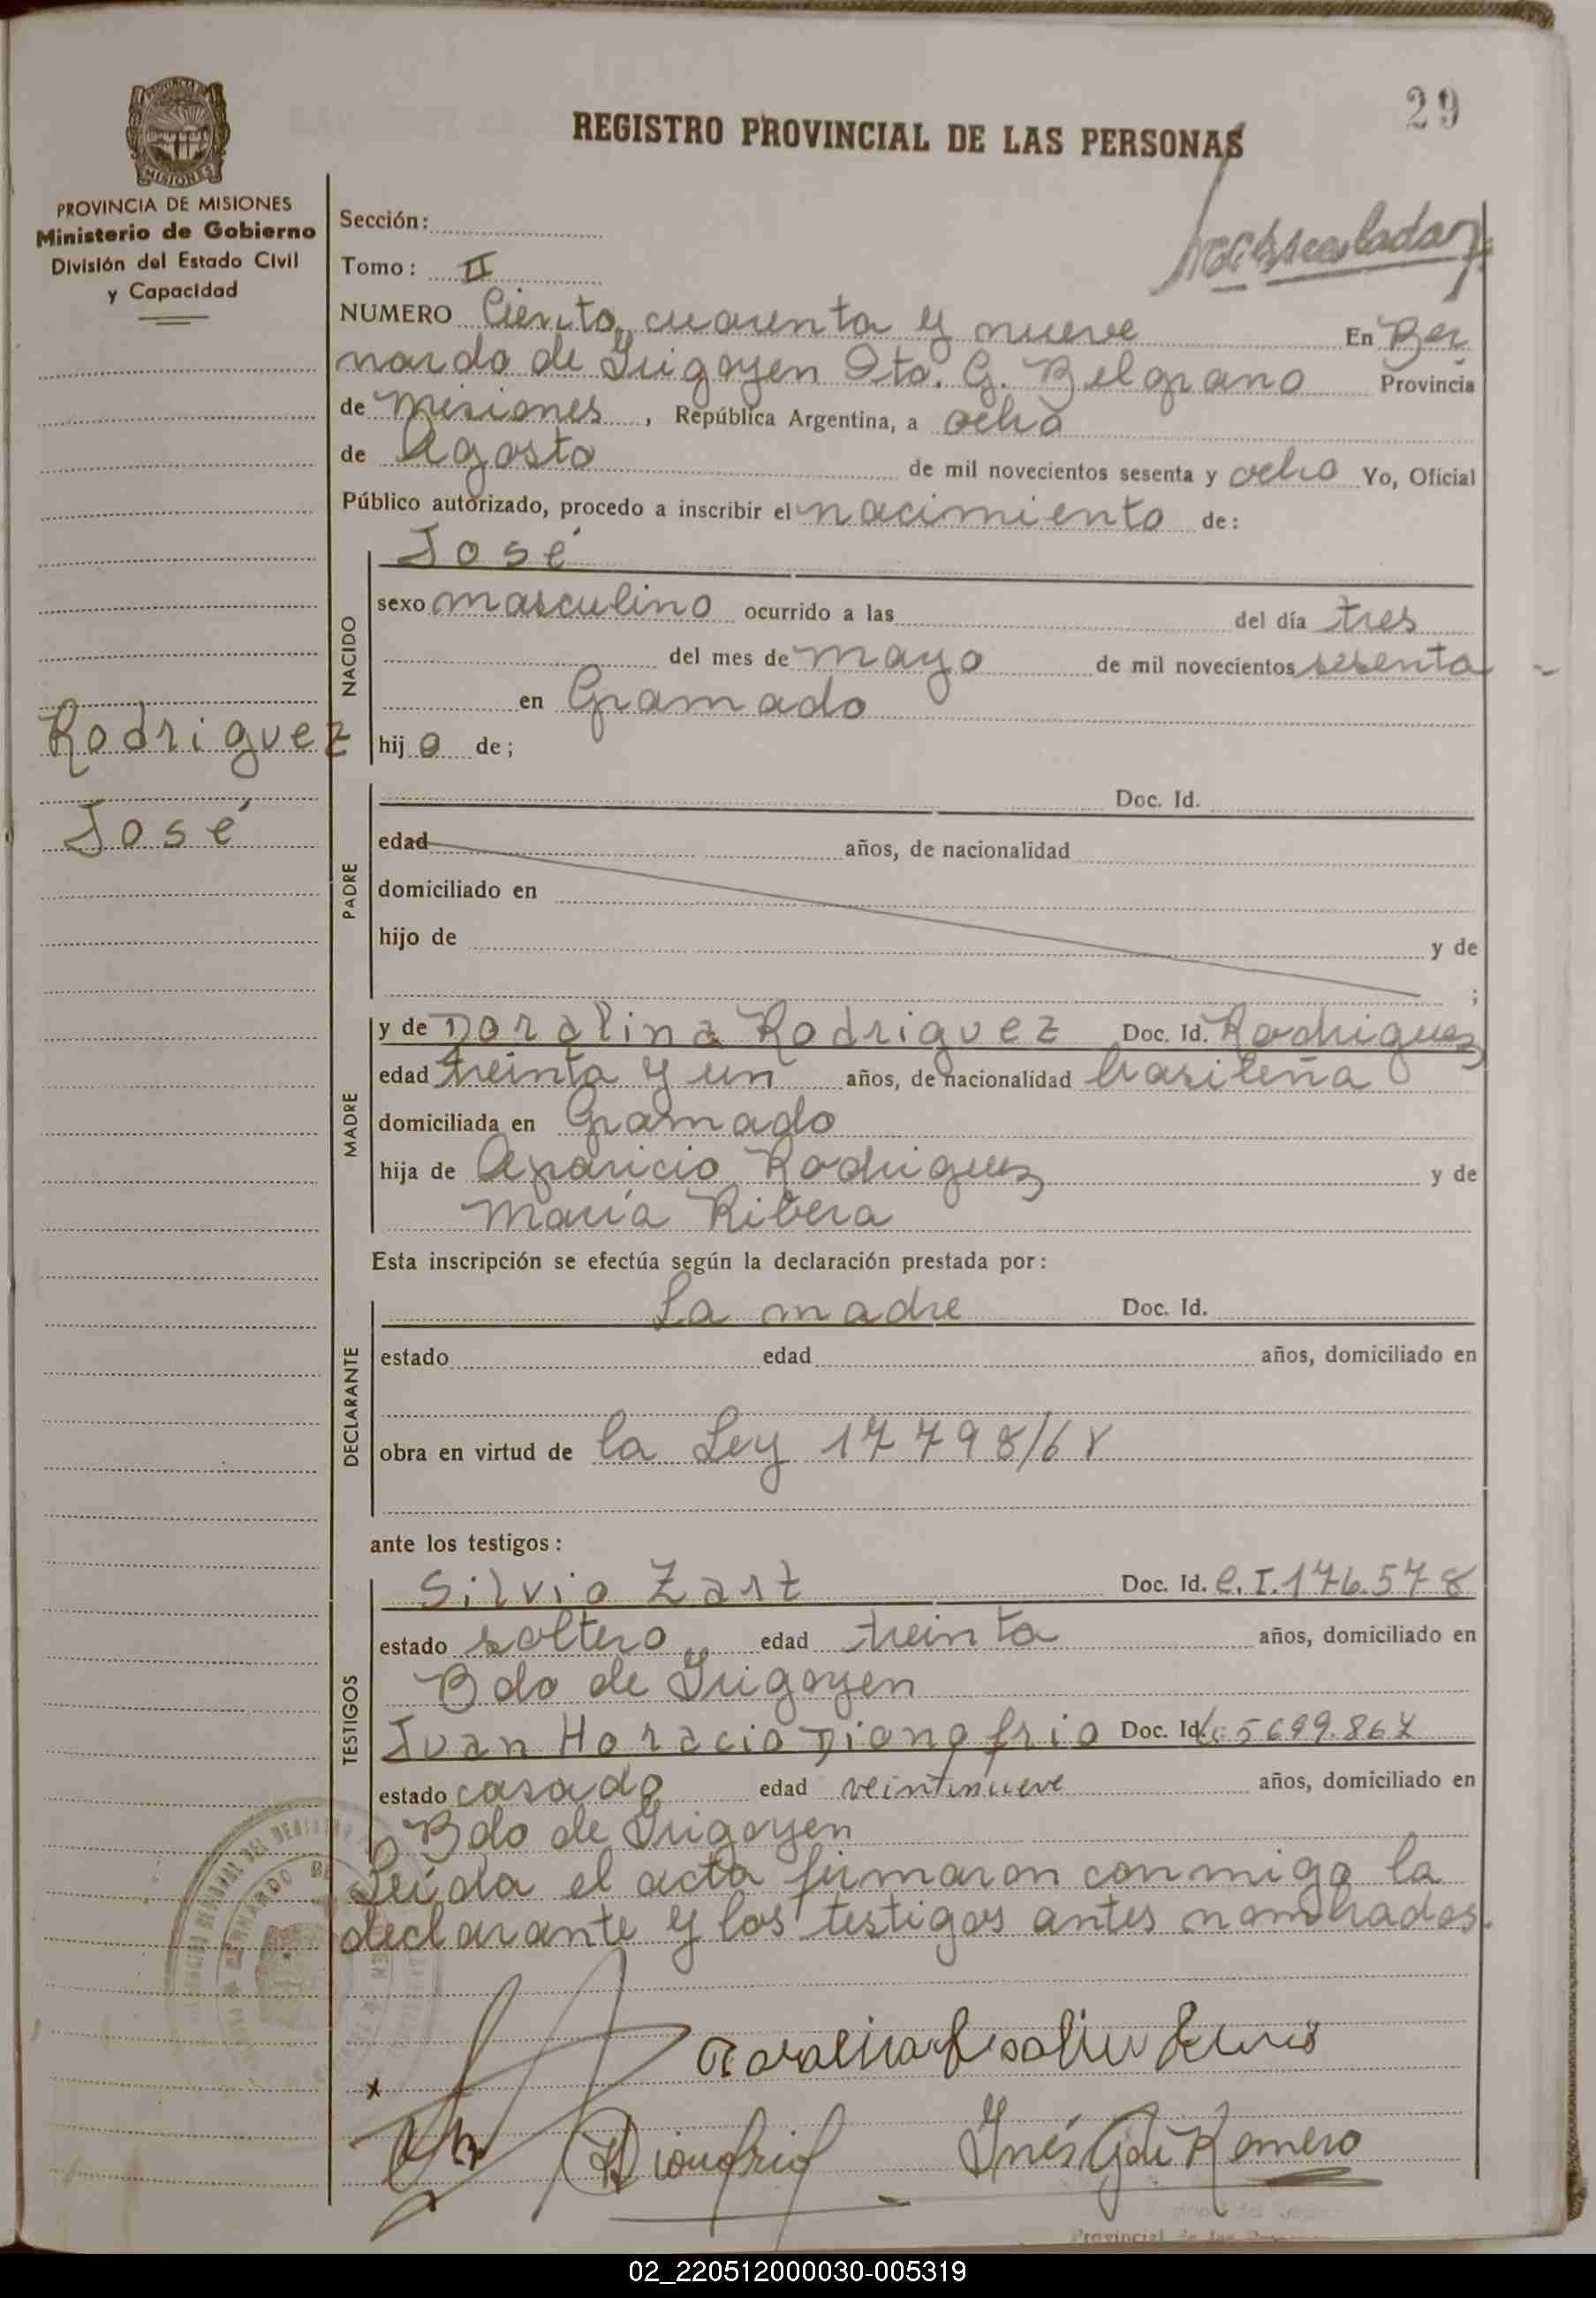 29
REGISTRO PROVINCIAL DE LAS PERSONAS
MISIONES
PROVINCIA DE MISIONES
Ministerio de Gobierno
División del Estado Civil
y Capacidad
Sección:
Tomo: II
NUMERO Ciento cuarenta y nueve En Ber
nardo de Irigoyen Dto. G. Belgrano Provincia
de Misiones, República Argentina, a ocho
de Agosto de mil novecientos sesenta y ocho Yo, Oficial
Público autorizado, procedo a inscribir el nacimiento de:
José
NACIDO
sexo masculino ocurrido a las del día tres
del mes de mayo de mil novecientos sesenta
en Gramado
Rodriguez
José
hijo de;
PADRE
Doc. Id.
edad años, de nacionalidad
domiciliado en
hijo de y de
;
MADRE
y de Doralina Rodriguez Doc. Id. Rodriguez
edad treinta y un años, de nacionalidad brasileña
domiciliada en Gramado
hija de Aparicio Rodriguez y de
María Ribera
Esta inscripción se efectúa según la declaración prestada por:
DECLARANTE
La madre Doc. Id.
estado edad años, domiciliado en
obra en virtud de la Ley 17798/68
ante los testigos:
TESTIGOS
Silvio Zart Doc. Id. C.I. 176.578
estado soltero edad treinta años, domiciliado en
Bdo de Irigoyen
Juan Horacio Dionofrio Doc. Id. 5699.867
estado casado edad veintinueve años, domiciliado en
Bdo de Irigoyen
Leída el acta firmaron conmigo la
declarante y los testigos antes nombrados.
x
Dionofrio
Inés G de Romero
Provincial de las
02_220512000030-005319